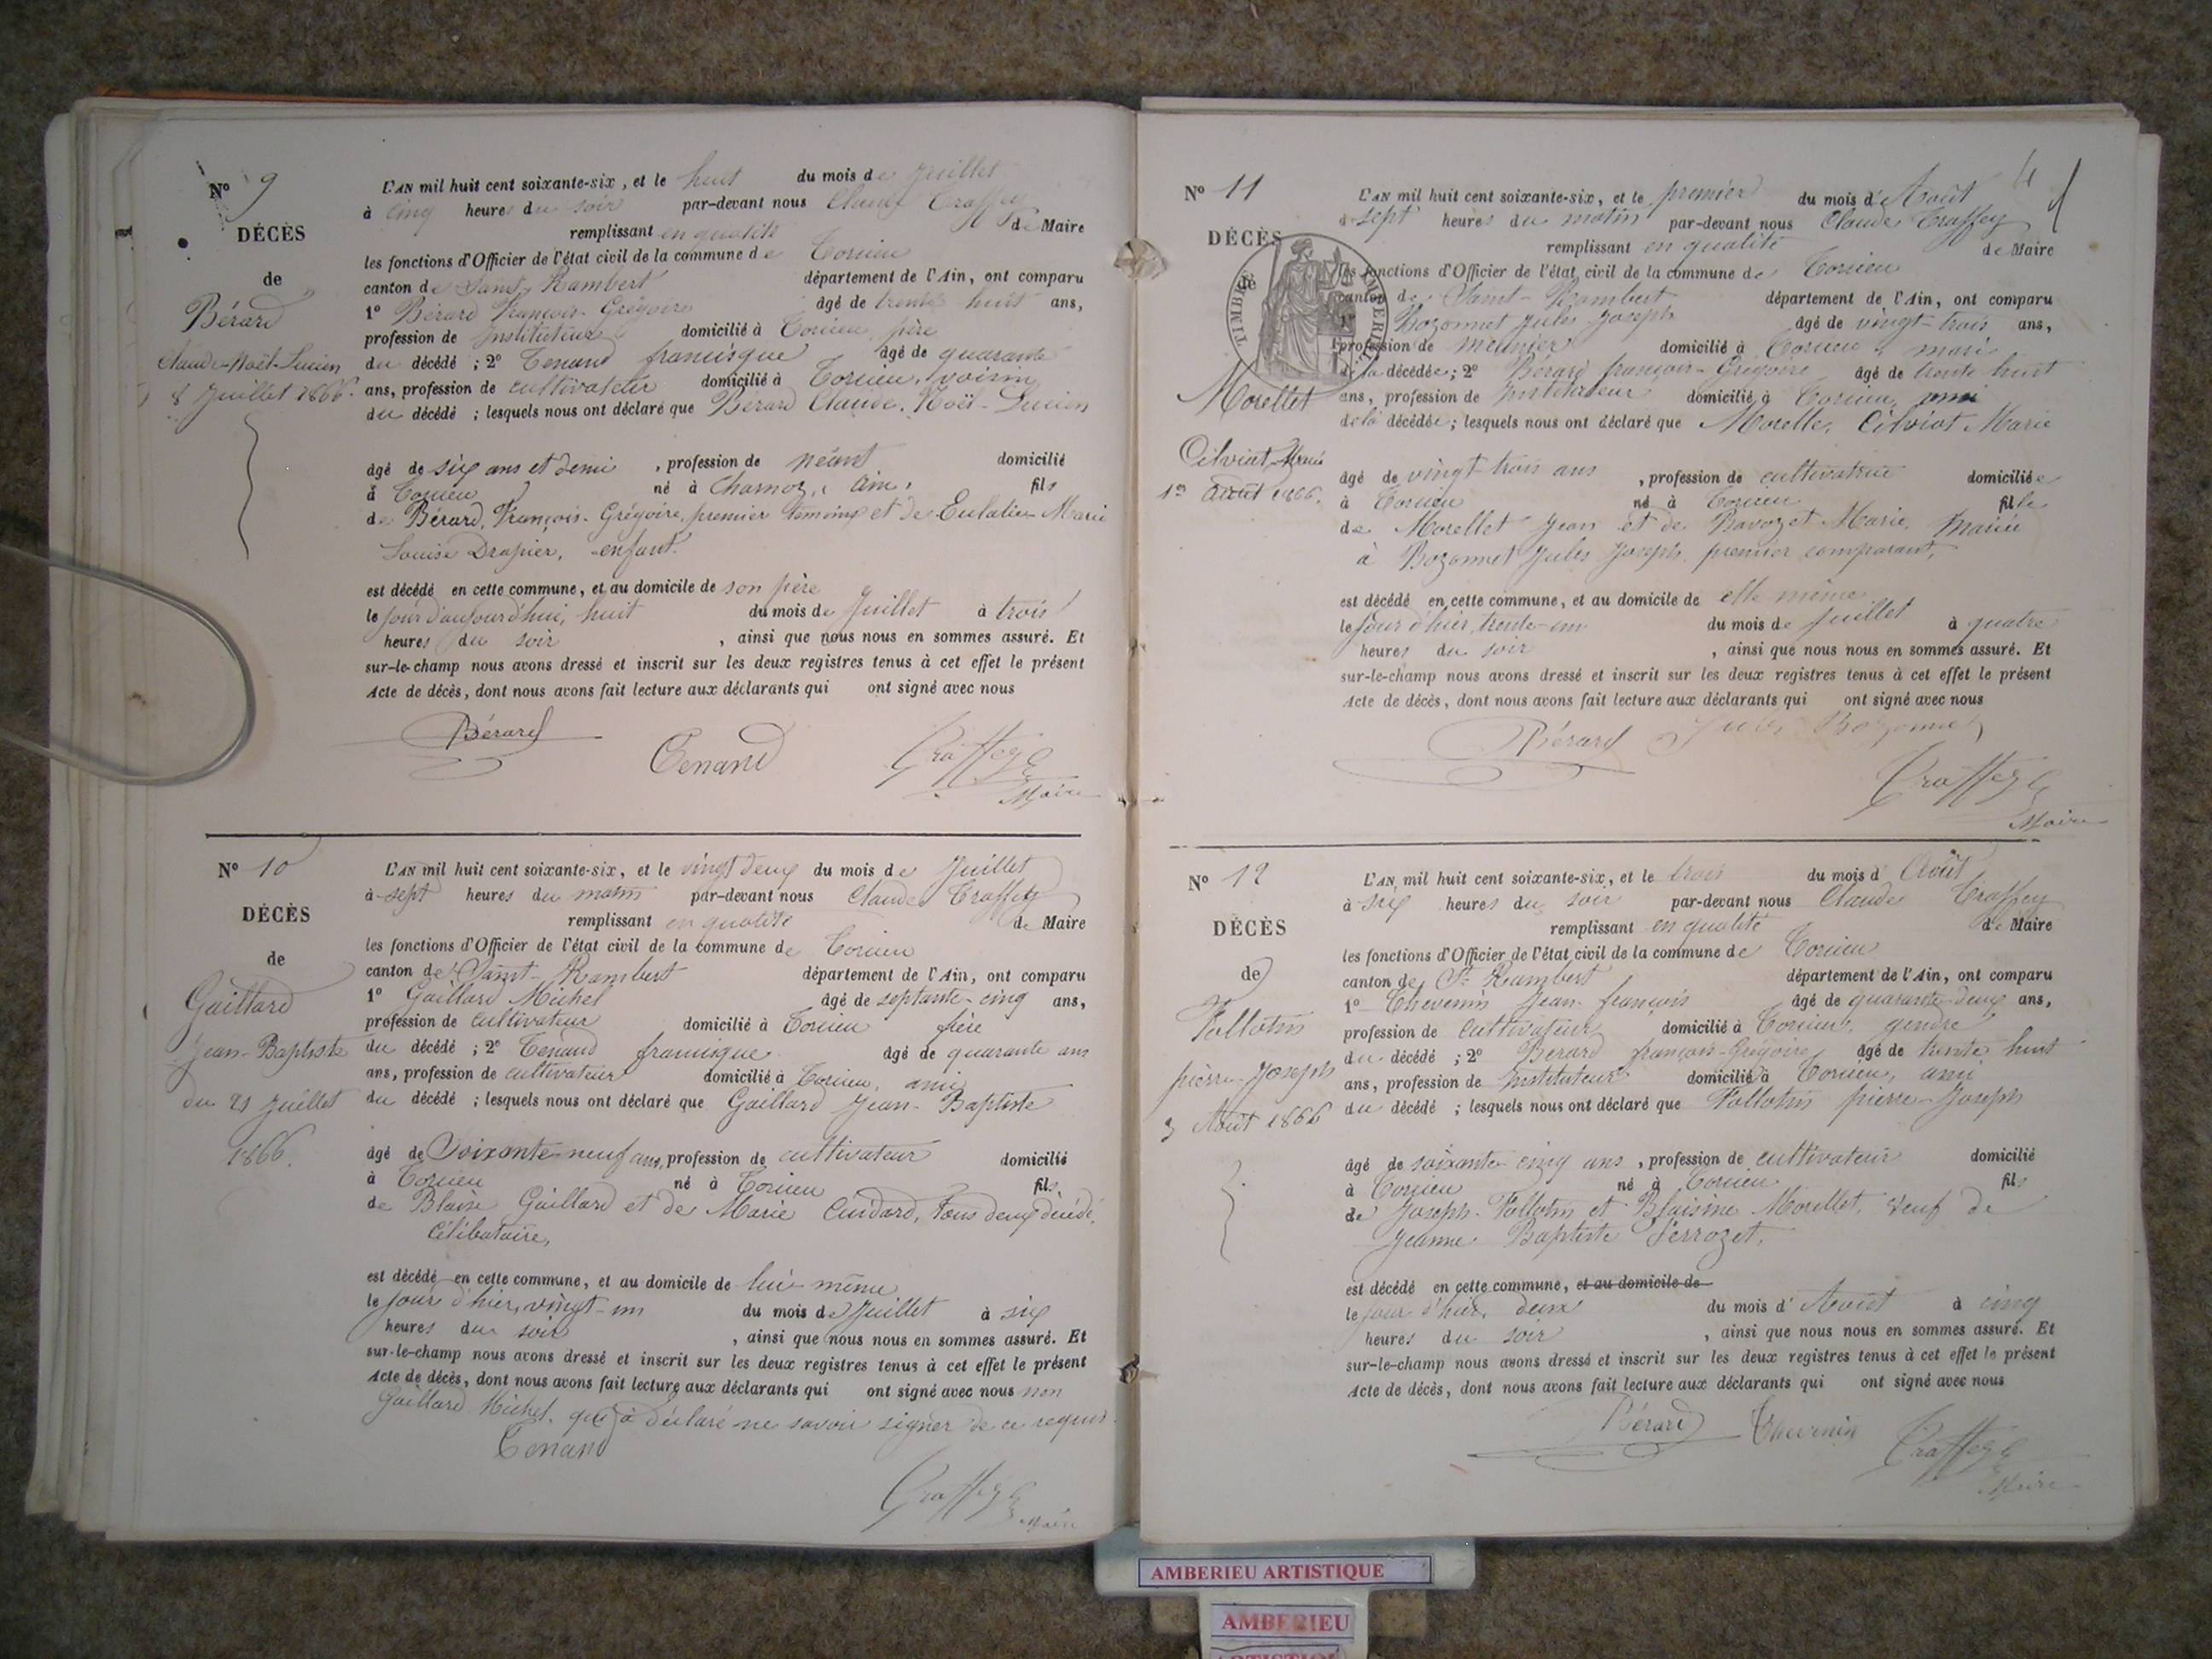 Nº 9
DÉCÈS
de
Bérard
Claude-Noël-Lucien
8 Juillet 1866.
L'AN mil huit cent soixante-six, et le huit du mois de Juillet
à cinq heures du soir par-devant nous Claude Traffey
remplissant en qualité de Maire
les fonctions d'Officier de l'état civil de la commune de Torcieu
canton de Saint-Rambert département de l'Ain, ont comparu
1º Bérard François-Grégoire âgé de trente huit ans,
profession de Instituteur domicilié à Torcieu père
du décédé ; 2º Tenand francisque âgé de quarante
ans, profession de cultivateur domicilié à Torcieu, voisin
du décédé ; lesquels nous ont déclaré que Bérard Claude-Noël-Lucien
âgé de six ans et demi , profession de néant domicilié
à Torcieu né à Charnoz, Ain, fils
de Bérard, François-Grégoire, premier témoins et de Eulalie Marie
Louise Drapier, enfant.
est décédé en cette commune, et au domicile de son père
le jour d'aujourd'hui, huit du mois de Juillet à trois
heures du soir , ainsi que nous nous en sommes assuré. Et
sur-le-champ nous avons dressé et inscrit sur les deux registres tenus à cet effet le présent
Acte de décès, dont nous avons fait lecture aux déclarants qui ont signé avec nous
Bérard Tenand Traffey
Maire
Nº 10
DÉCÈS
de
Gaillard
Jean-Baptiste
du 21 Juillet
1866.
L'AN mil huit cent soixante-six, et le vingt deux du mois de Juillet
à sept heures du matin par-devant nous Claude Traffey
remplissant en qualité de Maire
les fonctions d'Officier de l'état civil de la commune de Torcieu
canton de Saint-Rambert département de l'Ain, ont comparu
1º Gaillard Michel âgé de septante-cinq ans,
profession de cultivateur domicilié à Torcieu frère
du décédé ; 2º Tenand francisque âgé de quarante ans
ans, profession de cultivateur domicilié à Torcieu, ami
du décédé ; lesquels nous ont déclaré que Gaillard Jean-Baptiste
âgé de Soixante neuf ans, profession de cultivateur domicilié
à Torcieu né à Torcieu fils
de Blaise Gaillard et de Marie Cuidard, tous deux décédé,
Célibataire,
est décédé en cette commune, et au domicile de lui-même
le jour d'hier, vingt-un du mois de Juillet à six
heures du soir , ainsi que nous nous en sommes assuré. Et
sur-le-champ nous avons dressé et inscrit sur les deux registres tenus à cet effet le présent
Acte de décès, dont nous avons fait lecture aux déclarants qui ont signé avec nous non
Gaillard Michel, qui a déclaré ne savoir signer de ce requis
Tenand
Traffey
Maire
Nº 11
DÉCÈS
de
TIMBRE IMPERIAL
Morellet
Cilviat Marie
1er Août 1866.
L'AN mil huit cent soixante-six, et le premier du mois d'Août
à sept heures du matin par-devant nous Claude Traffey
remplissant en qualité de Maire
les fonctions d'Officier de l'état civil de la commune de Torcieu
canton de Saint-Rambert département de l'Ain, ont comparu
1º Bozonnet Jules Joseph âgé de vingt-trois ans,
profession de meunier domicilié à Torcieu, mari
de la décédée ; 2º Bérard françois-Grégoire âgé de trente huit
ans, profession de Instituteur domicilié à Torcieu, ami
de la décédée ; lesquels nous ont déclaré que Morelle, Cilviat Marie
âgé de vingt-trois ans , profession de cultivatrice domiciliée
à Torcieu né à Torcieu fille
de Morellet Jean et de Bavozet Marie, mariée
à Bozonnet Jules Joseph, premier comparant,
est décédé en cette commune, et au domicile de elle même
le jour d'hier, trente-un du mois de Juillet à quatre
heures du soir , ainsi que nous nous en sommes assuré. Et
sur-le-champ nous avons dressé et inscrit sur les deux registres tenus à cet effet le présent
Acte de décès, dont nous avons fait lecture aux déclarants qui ont signé avec nous
Bérard Jules Bozonnet
Traffey
Maire
Nº 12
DÉCÈS
de
Vallotin
pierre-Joseph
3 Août 1866
L'AN mil huit cent soixante-six, et le trois du mois d'Août
à six heures du soir par-devant nous Claude Traffey
remplissant en qualité de Maire
les fonctions d'Officier de l'état civil de la commune de Torcieu
canton de St Rambert département de l'Ain, ont comparu
1º Thevenin Jean françois âgé de quarante-deux ans,
profession de cultivateur domicilié à Torcieu, gendre
du décédé ; 2º Bérard françois-Grégoire âgé de trente huit
ans, profession de Instituteur domicilié à Torcieu, ami
du décédé ; lesquels nous ont déclaré que Vallotin pierre-Joseph
âgé de soixante cinq ans , profession de cultivateur domicilié
à Torcieu né à Torcieu fils
de Joseph Vallotin et Blaisine Morellet, veuf de
Jeanne Baptiste Perrozet,
est décédé en cette commune, et au domicile de
le jour d'hier, deux du mois d'Août à cinq
heures du soir , ainsi que nous nous en sommes assuré. Et
sur-le-champ nous avons dressé et inscrit sur les deux registres tenus à cet effet le présent
Acte de décès, dont nous avons fait lecture aux déclarants qui ont signé avec nous
Bérard Thevenin Traffey
Maire
AMBERIEU ARTISTIQUE
AMBERIEU
ARTISTIQUE